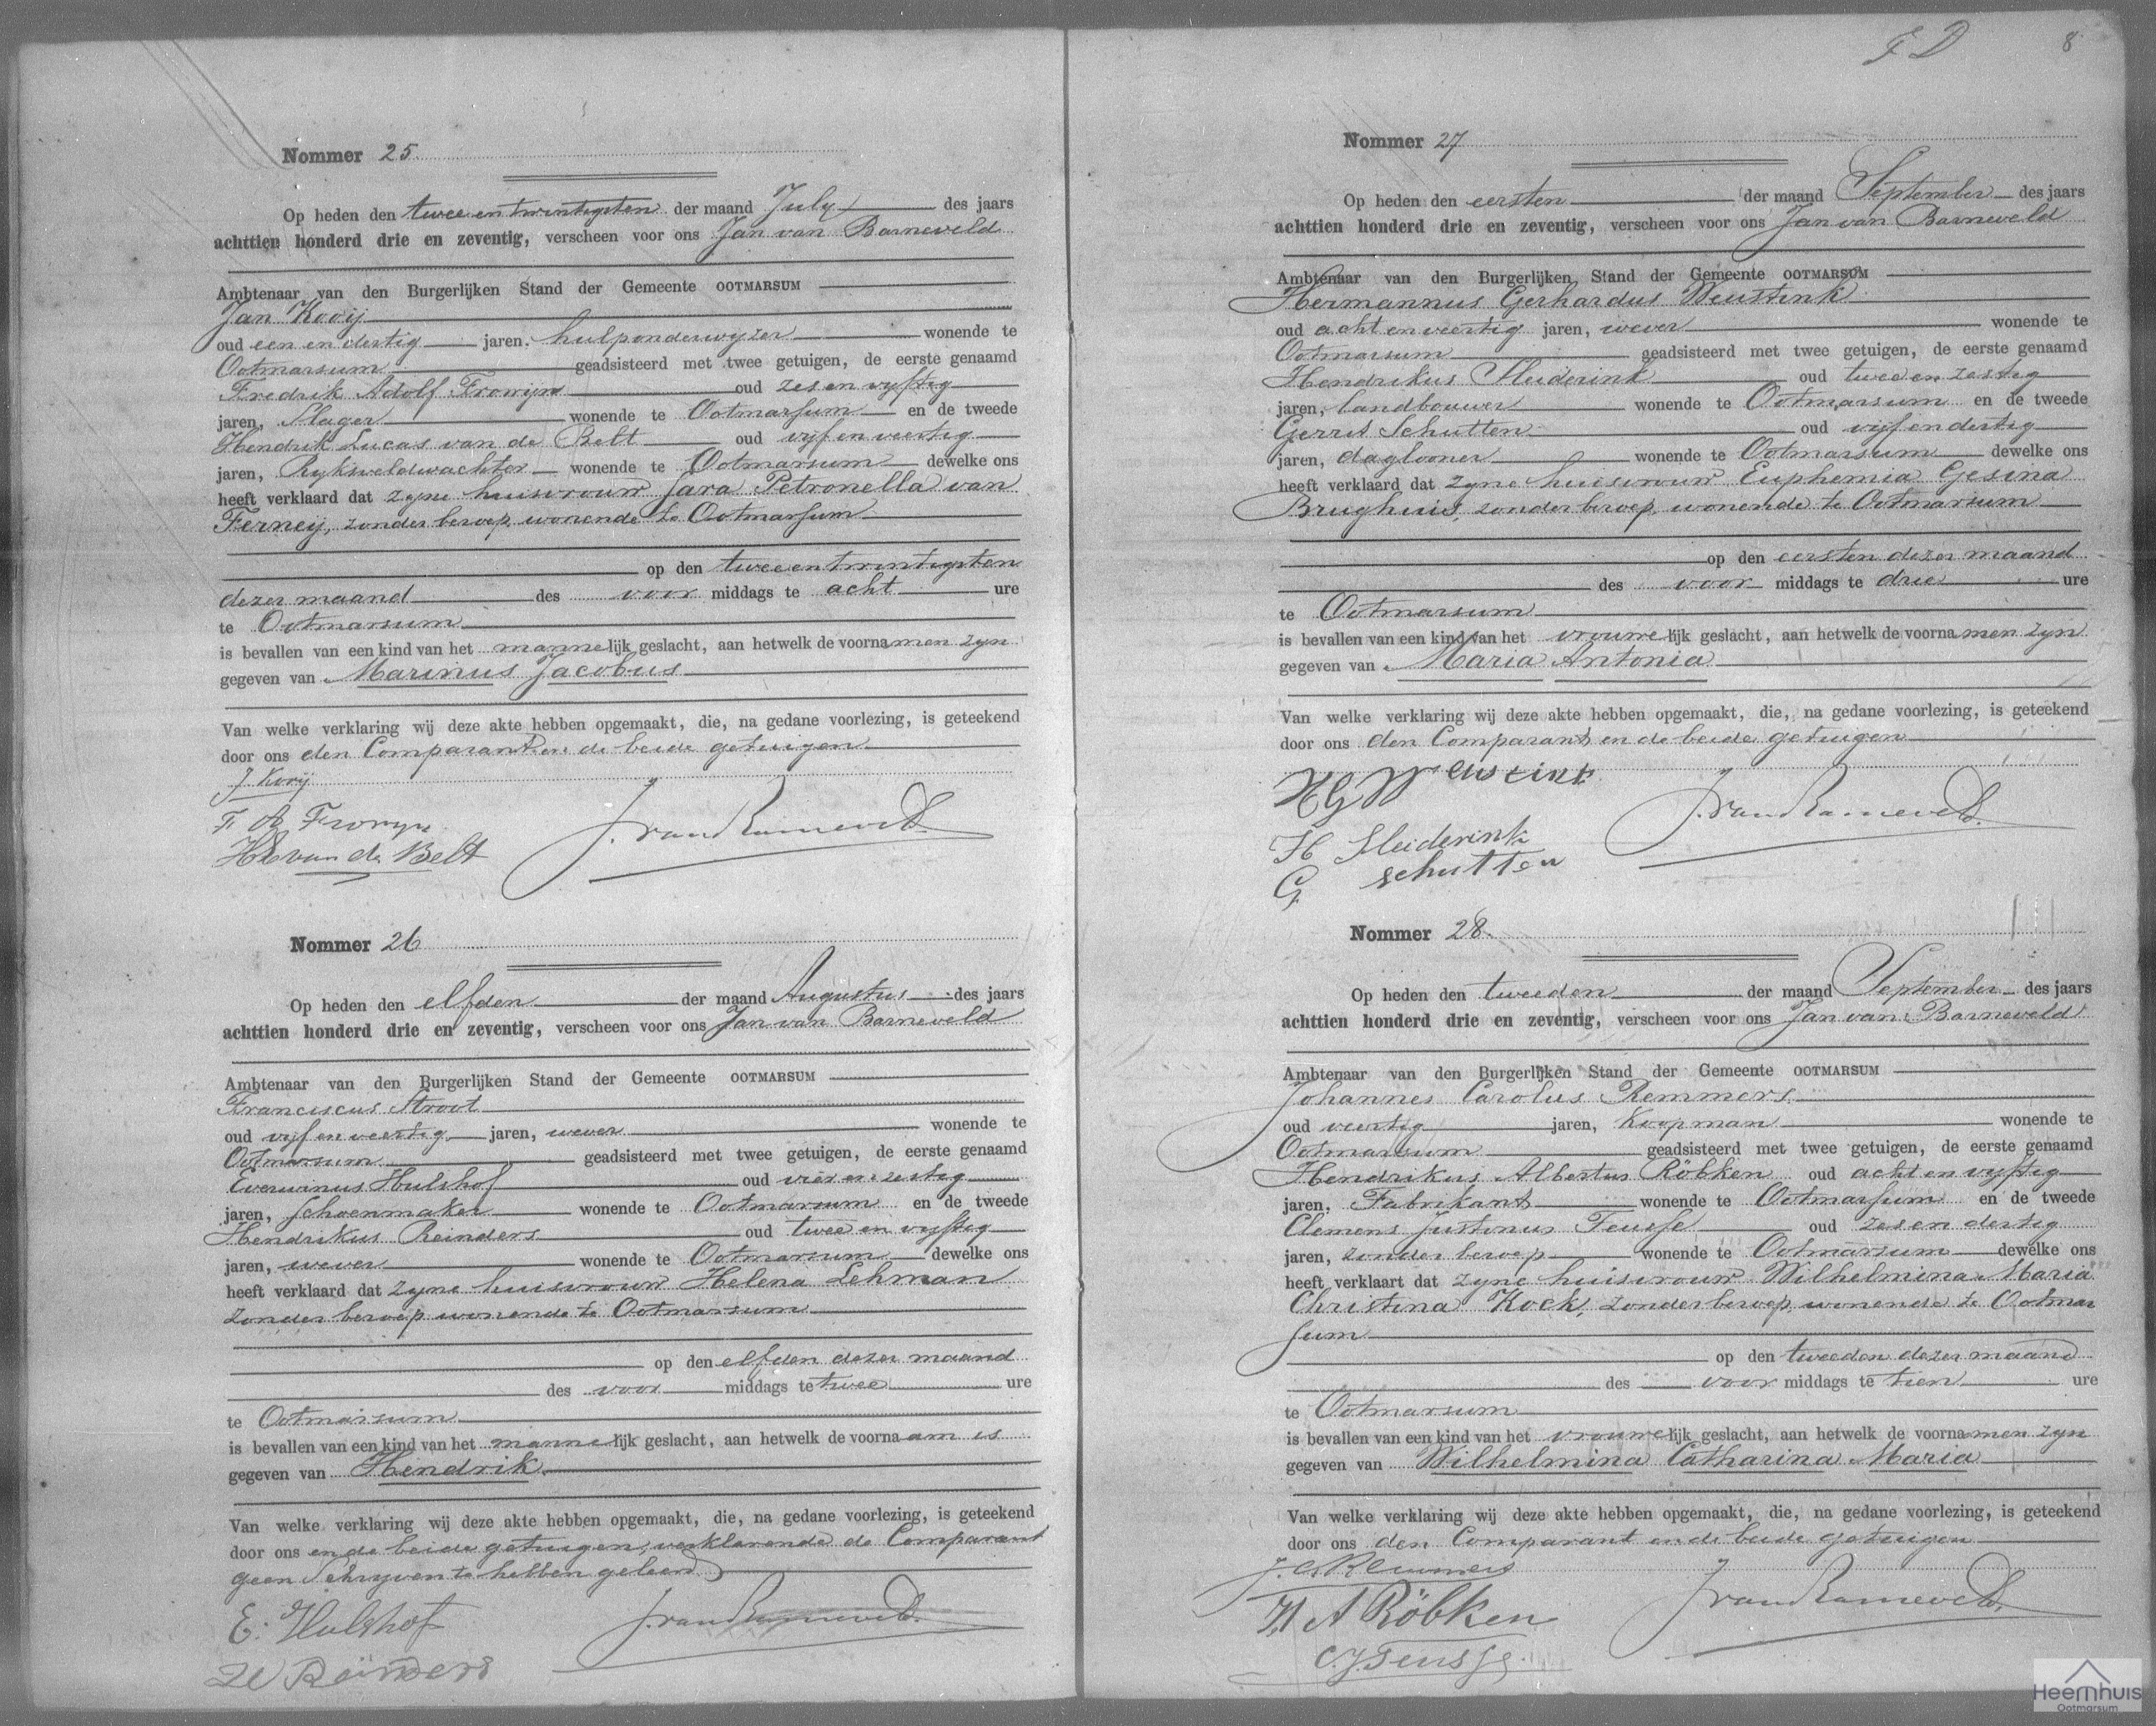 Nommer 25
Op heden den twee en twintigsten der maand July des jaars
achttien honderd drie en zeventig, verscheen voor ons Jan van Barneveld
Ambtenaar van den Burgerlijken Stand der Gemeente OOTMARSUM
Jan Kooij
oud een en dertig jaren, hulponderwyzer wonende te
Ootmarsum geadsisteerd met twee getuigen, de eerste genaamd
Fredrik Adolf Frowijn oud zes en vyftig
jaren, Slager wonende te Ootmarsum en de tweede
Hendrik Lucas van de Belt oud vyf en veertig
jaren, Ryksveldwachter wonende te Ootmarsum dewelke ons
heeft verklaard dat zyne huisvrouw Sara Petronella van
Ferneij, zonder beroep, wonende te Ootmarsum
op den twee en twintigsten
dezer maand des voor middags te acht ure
te Ootmarsum
is bevallen van een kind van het mannelijk geslacht, aan hetwelk de voornamen zyn
gegeven van Marinus Jacobus
Van welke verklaring wij deze akte hebben opgemaakt, die, na gedane voorlezing, is geteekend
door ons den Comparant en de beide getuigen
J. Kooij
F A Frowyn
HL van de Belt
J. van Barneveld.
Nommer 26
Op heden den elfden der maand Augustus des jaars
achttien honderd drie en zeventig, verscheen voor ons Jan van Barneveld
Ambtenaar van den Burgerlijken Stand der Gemeente OOTMARSUM
Franciscus Stroot
oud vyf en veertig jaren, wever wonende te
Ootmarsum geadsisteerd met twee getuigen, de eerste genaamd
Everwinus Hulshof oud vier en zestig
jaren, Schoenmaker wonende te Ootmarsum en de tweede
Hendrikus Reinders oud twee en vyftig
jaren, wever wonende te Ootmarsum dewelke ons
heeft verklaard dat zyne huisvrouw Helena Lehman
zonder beroep wonende te Ootmarsum
op den elfden dezer maand
des voor middags te twee ure
te Ootmarsum
is bevallen van een kind van het mannelijk geslacht, aan hetwelk de voornaam is
gegeven van Hendrik
Van welke verklaring wij deze akte hebben opgemaakt, die, na gedane voorlezing, is geteekend
door ons en de beide getuigen, verklarende de Comparant
geen Schryven te hebben geleerd
E. Hulshof
H Reinders
J. van Barneveld.
F D 8
Nommer 27
Op heden den eersten der maand September des jaars
achttien honderd drie en zeventig, verscheen voor ons Jan van Barneveld
Ambtenaar van den Burgerlijken Stand der Gemeente OOTMARSUM
Hermannus Gerhardus Weustink
oud acht en veertig jaren, wever wonende te
Ootmarsum geadsisteerd met twee getuigen, de eerste genaamd
Hendrikus Sleiderink oud twee en zestig
jaren, landbouwer wonende te Ootmarsum en de tweede
Gerrit Schutten oud vyf en dertig
jaren, daglooner wonende te Ootmarsum dewelke ons
heeft verklaard dat zyne huisvrouw Euphemia Gesina
Brughuis, zonder beroep, wonende te Ootmarsum
op den eersten dezer maand
des voor middags te drie ure
te Ootmarsum
is bevallen van een kind van het vrouwelijk geslacht, aan hetwelk de voornamen zyn
gegeven van Maria Antonia
Van welke verklaring wij deze akte hebben opgemaakt, die, na gedane voorlezing, is geteekend
door ons den Comparant en de beide getuigen
HG Weustink
H Sleiderink
G schutten
J. van Barneveld.
Nommer 28.
Op heden den tweeden der maand September des jaars
achttien honderd drie en zeventig, verscheen voor ons Jan van Barneveld
Ambtenaar van den Burgerlijken Stand der Gemeente OOTMARSUM
Johannes Carolus Remmers
oud veertig jaren, Koopman wonende te
Ootmarsum geadsisteerd met twee getuigen, de eerste genaamd
Hendrikus Albertus Röbken oud acht en vyftig
jaren, Fabrikant wonende te Ootmarsum en de tweede
Clemens Justinus Teusse oud zes en dertig
jaren, zonder beroep wonende te Ootmarsum dewelke ons
heeft verklaart dat zyne huisvrouw Wilhelmina Maria
Christina Kock, zonder beroep, wonende te Ootmar
sum
op den tweeden dezer maand
des voor middags te tien ure
te Ootmarsum
is bevallen van een kind van het vrouwelijk geslacht, aan hetwelk de voornamen zyn
gegeven van Wilhelmina Catharina Maria
Van welke verklaring wij deze akte hebben opgemaakt, die, na gedane voorlezing, is geteekend
door ons den Comparant en de beide getuigen
J. C. Remmers
H A Röbken
C. J. Teusse.
J van Barneveld.
Heemhuis
Ootmarsum